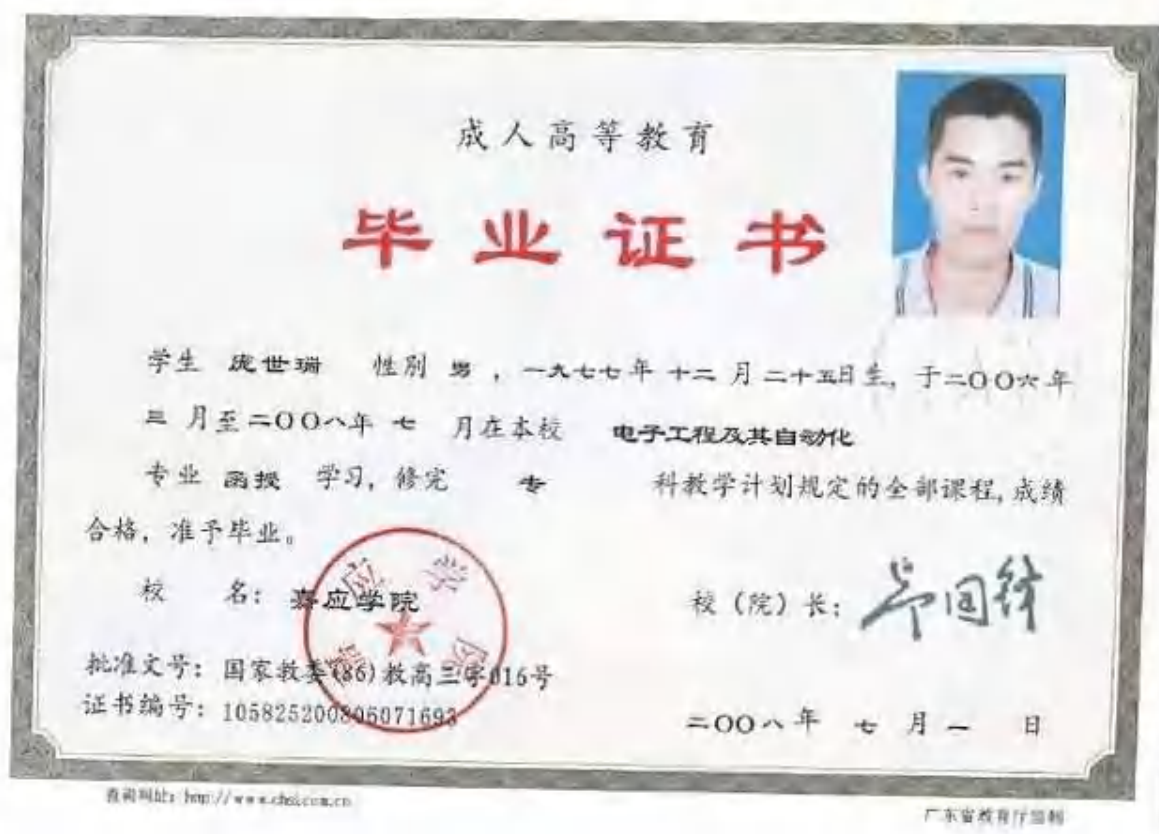 成人高等教育
毕业证书
学生 庞世瑞 性别 男，一九七七年十二月二十五日生，于二〇〇六年
三月至二〇〇八年七月在本校 电子工程及其自动化
专业 函授 学习，修完 专 科教学计划规定的全部课程，成绩
合格，准予毕业。
校 名：嘉应学院
校（院）长：
批准文号：国家教委(86)教高三字016号
证书编号：105825200806071693
二〇〇八年 七 月 一 日
查询网址：http://www.chsi.com.cn
广东省教育厅监制
嘉应学院